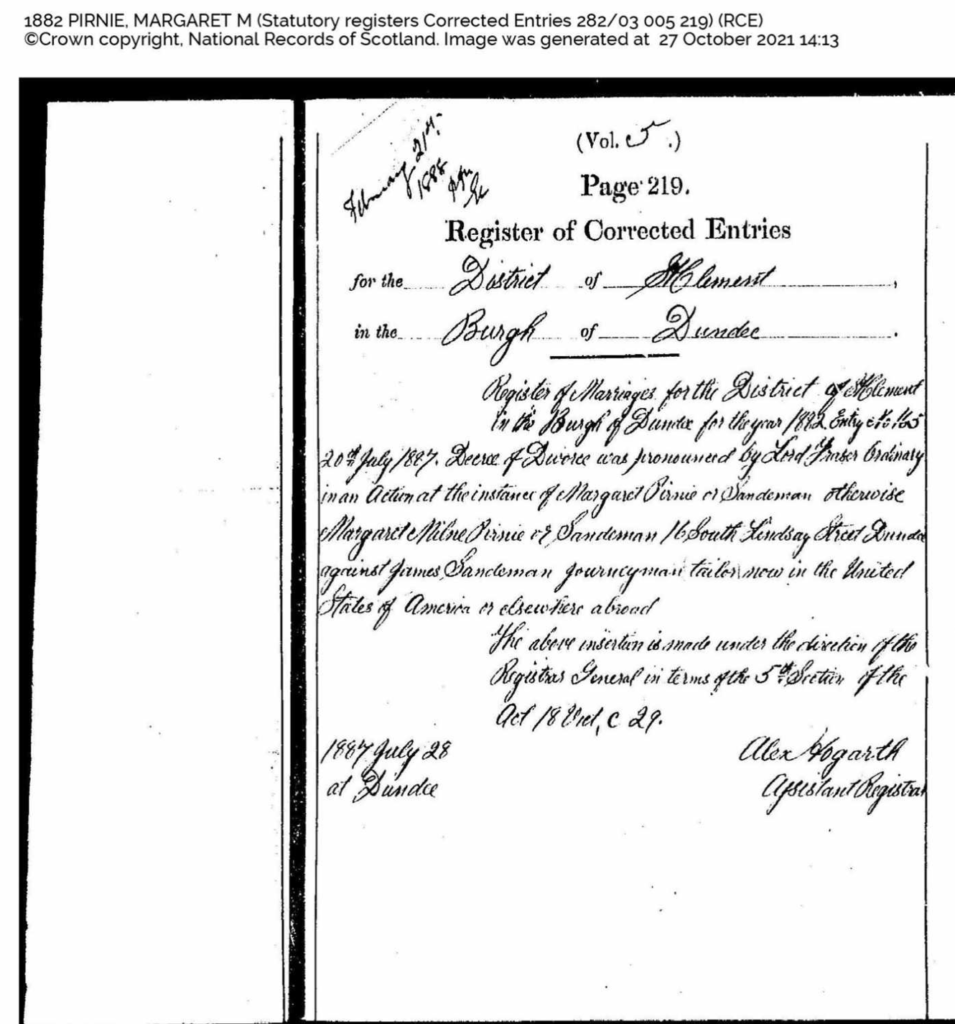 1882 PIRNIE, MARGARET M (Statutory registers Corrected Entries 282/03 005 219) (RCE)
©Crown copyright, National Records of Scotland. Image was generated at 27 October 2021 14:13
February 21st
1888
(Vol. 5.)
Page 219.
Register of Corrected Entries
for the District of St Clement,
in the Burgh of Dundee.
Register of Marriages for the District of St Clement
in the Burgh of Dundee for the year 1882 Entry No 165
20th July 1887. Decree of Divorce was pronounced by Lord Fraser Ordinary
in an Action at the instance of Margaret Pirnie or Sandeman otherwise
Margaret Milne Pirnie or Sandeman 16 South Lindsay Street Dundee
against James Sandeman journeyman tailor now in the United
States of America or elsewhere abroad
The above insertion is made under the direction of the
Registrar General in terms of the 5th Section of the
Act 18 Vict, c 29.
1887 July 28
Alex Hogarth
at Dundee
Assistant Registrar